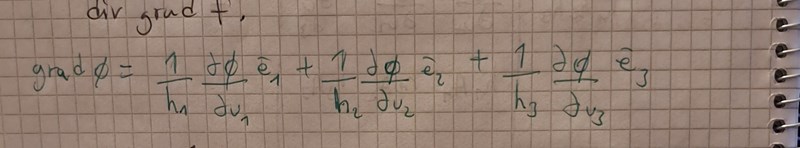 div grad f,
grad ϕ = 1/h₁ ∂ϕ/∂u₁ ē₁ + 1/h₂ ∂ϕ/∂u₂ ē₂ + 1/h₃ ∂ϕ/∂u₃ ē₃